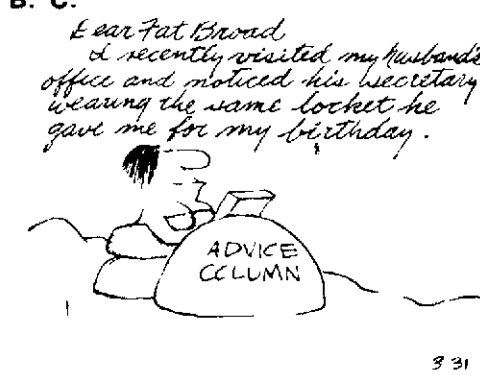 B. C.
Dear Fat Broad
I recently visited my husband's
office and noticed his secretary
wearing the same locket he
gave me for my birthday.
ADVICE
COLUMN
3 31